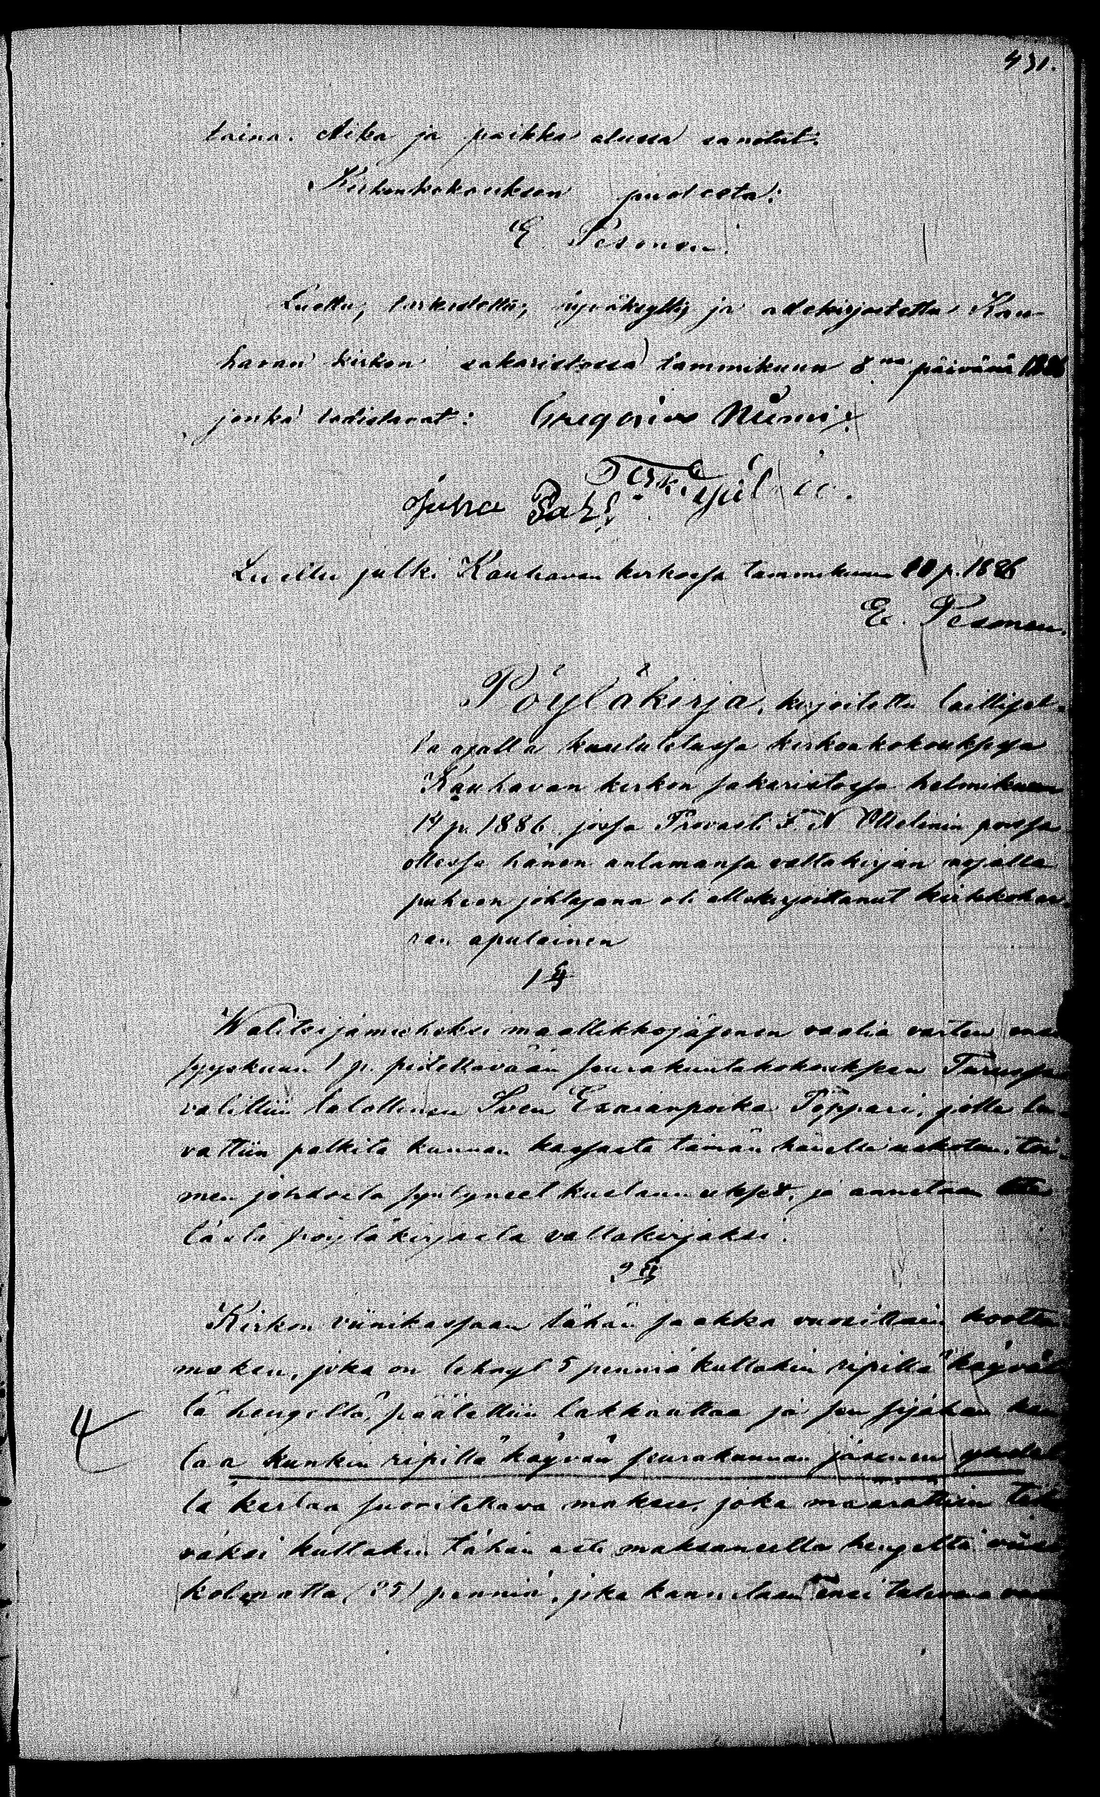 431.
taina. Aika ja paikka alussa sanotut.
Kirkonkokouksen puolesta:
E. Pesonen.
Luettu, tarkastettu, hyväksytty ja allekirjoitettu Kau-
havan kirkon sakaristossa tammikuun 8na päivänä 1886
jonka todistavat: Gregorius Niemi
Juha
Luettu julki Kauhavan kirkossa tammikuun 10 p. 1886
E. Pesonen.
Pöytäkirja, kirjoitettu laillisel-
la ajalla kuulutetussa kirkonkokouksessa
Kauhavan kirkon sakaristossa helmikuun
14 p. 1886, jossa Provasti F. N. poissa
ollessa hänen antamansa valtakirjan nojalla
puheen johtajana oli allekirjoittanut kirkkoher-
ran apulainen
1 §
Walitsijamieheksi maallikkojäsenen vaalia varten ensi
syyskuun 1 p. pidettävään seurakuntakokoukseen Turussa
valittiin talollinen Sven Esaianpoika Töppari, jolle lu-
vattiin palkita kunnan kassasta tämän hänelle uskotun toi-
men johdosta syntyneet kustannukset, ja annetaan
tästä pöytäkirjasta valtakirjaksi.
2 §
Kirkon viinikassaan tähän saakka vuosittain koottu
maksu, joka on tehnyt 5 penniä kultakin ripillä käyväl-
tä hengeltä, päätettiin lakkauttaa ja sen sijahan
taa kunkin ripillä käyvän seurakunnan jäsenen
tä kertaa suoritettava maksu, joka määrättiin
väksi kultakin tähän asti maksaneelta hengeltä viisi
kolmatta (25) penniä, joka kannetaan ensi tulevana
4